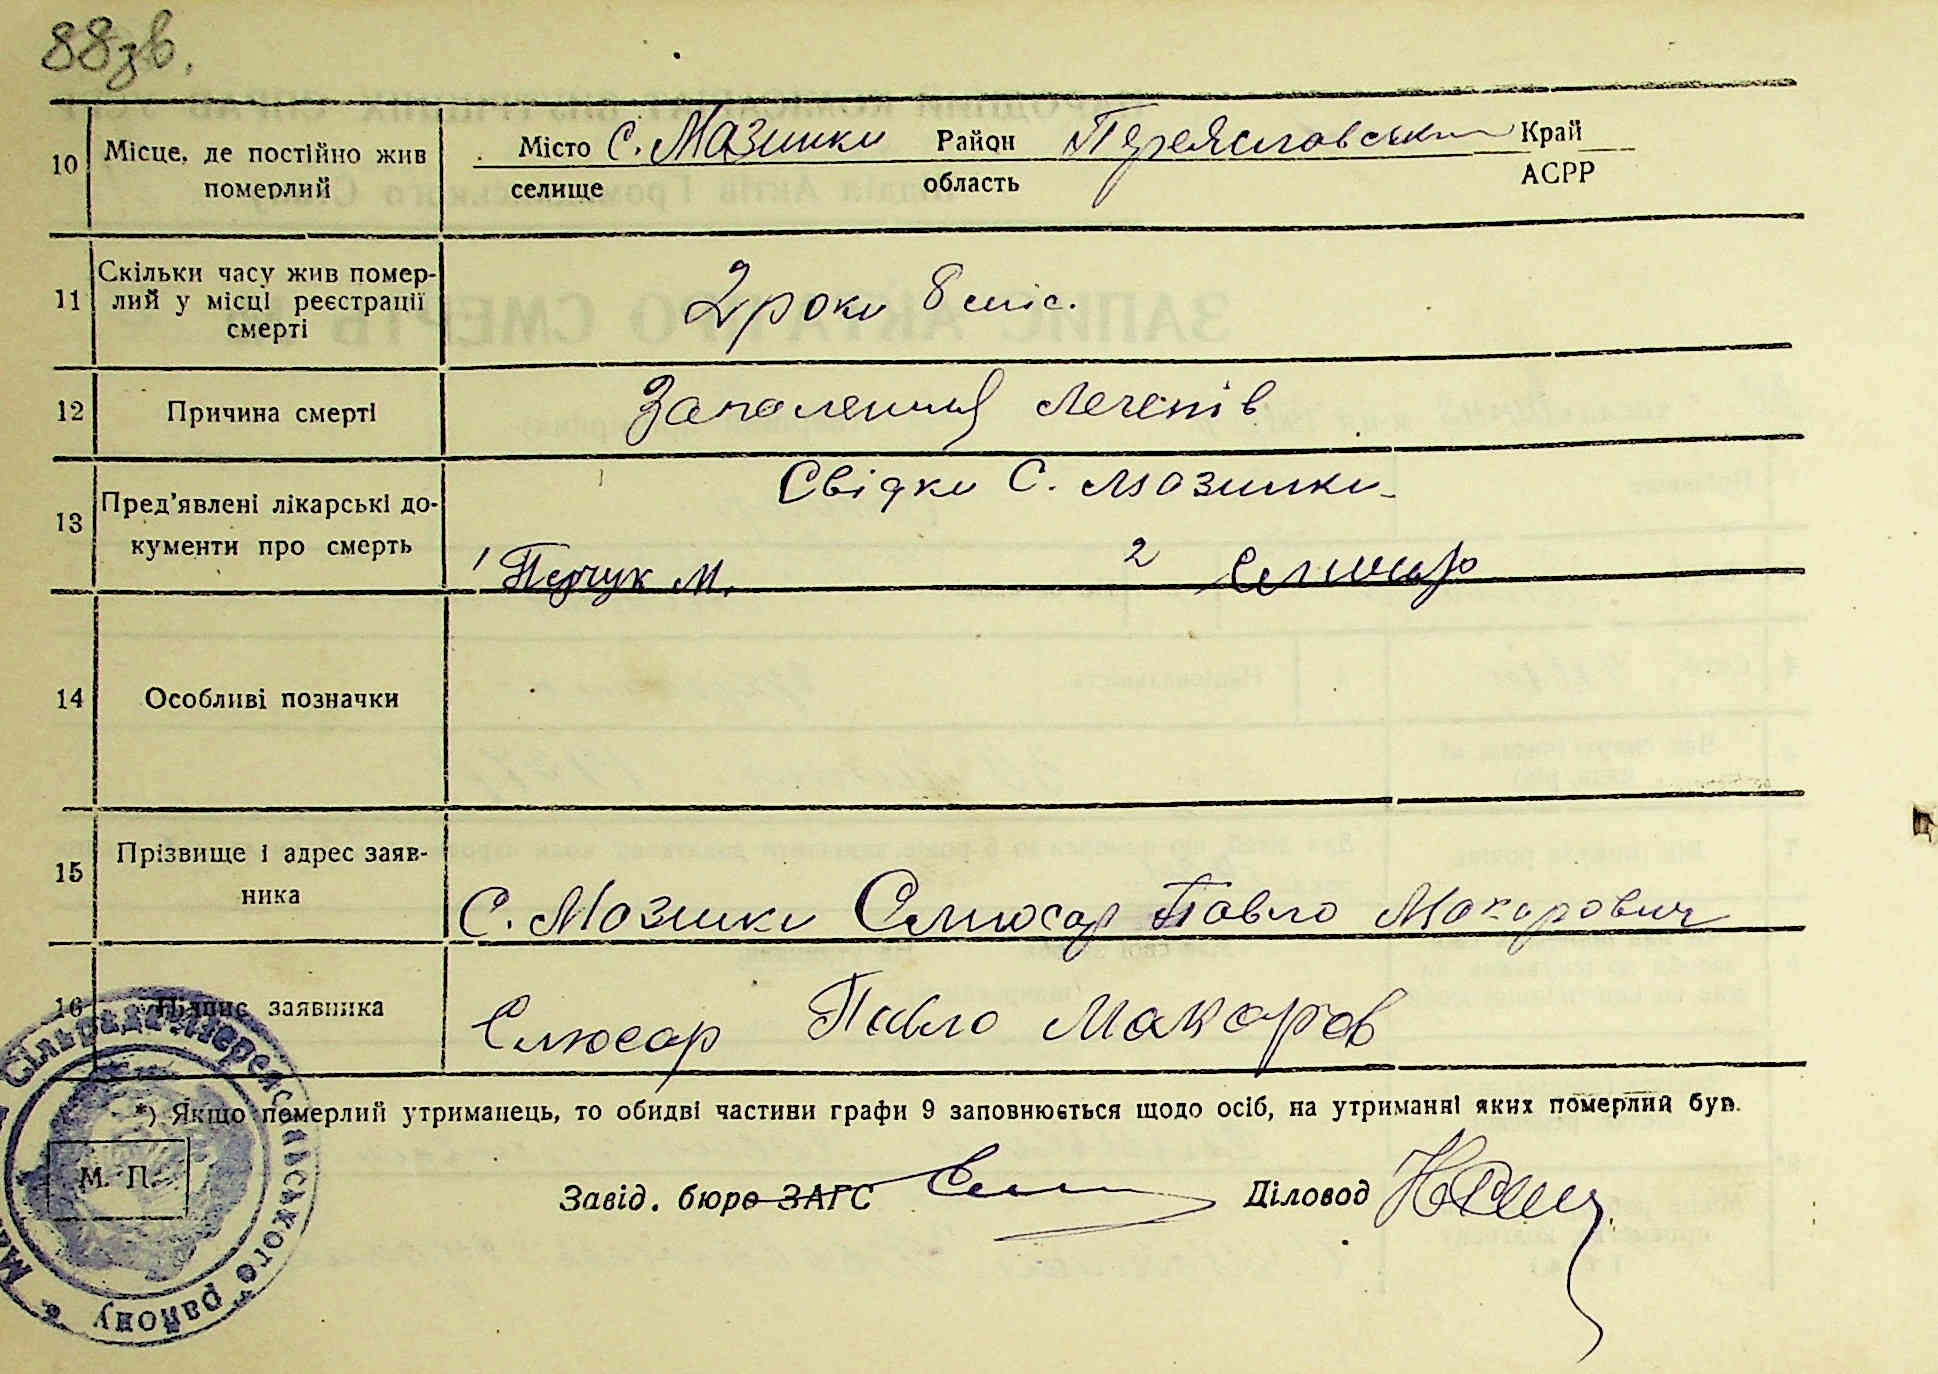 88зв.
10 Місце, де постійно жив померлий
Місто с. Мазинки Район Переяславський Край
селище область АСРР
11 Скільки часу жив помер-
лий у місці реєстрації
смерті
2 роки 8 міс.
12 Причина смерті Запалення легенів
13 Пред'явлені лікарські до-
кументи про смерть
Свідки с. Мазинки
1 М. 2 Слюсар
14 Особливі позначки
15 Прізвище і адрес заяв-
ника
С. Мазинки Слюсар Павло Макарович
16 Підпис заявника Слюсар Павло Макаров
*) Якщо померлий утриманець, то обидві частини графи 9 заповнюється щодо осіб, на утриманні яких померлий був.
М. П.
Завід. бюро ЗАГС Діловод
Сільрада Переяславського району